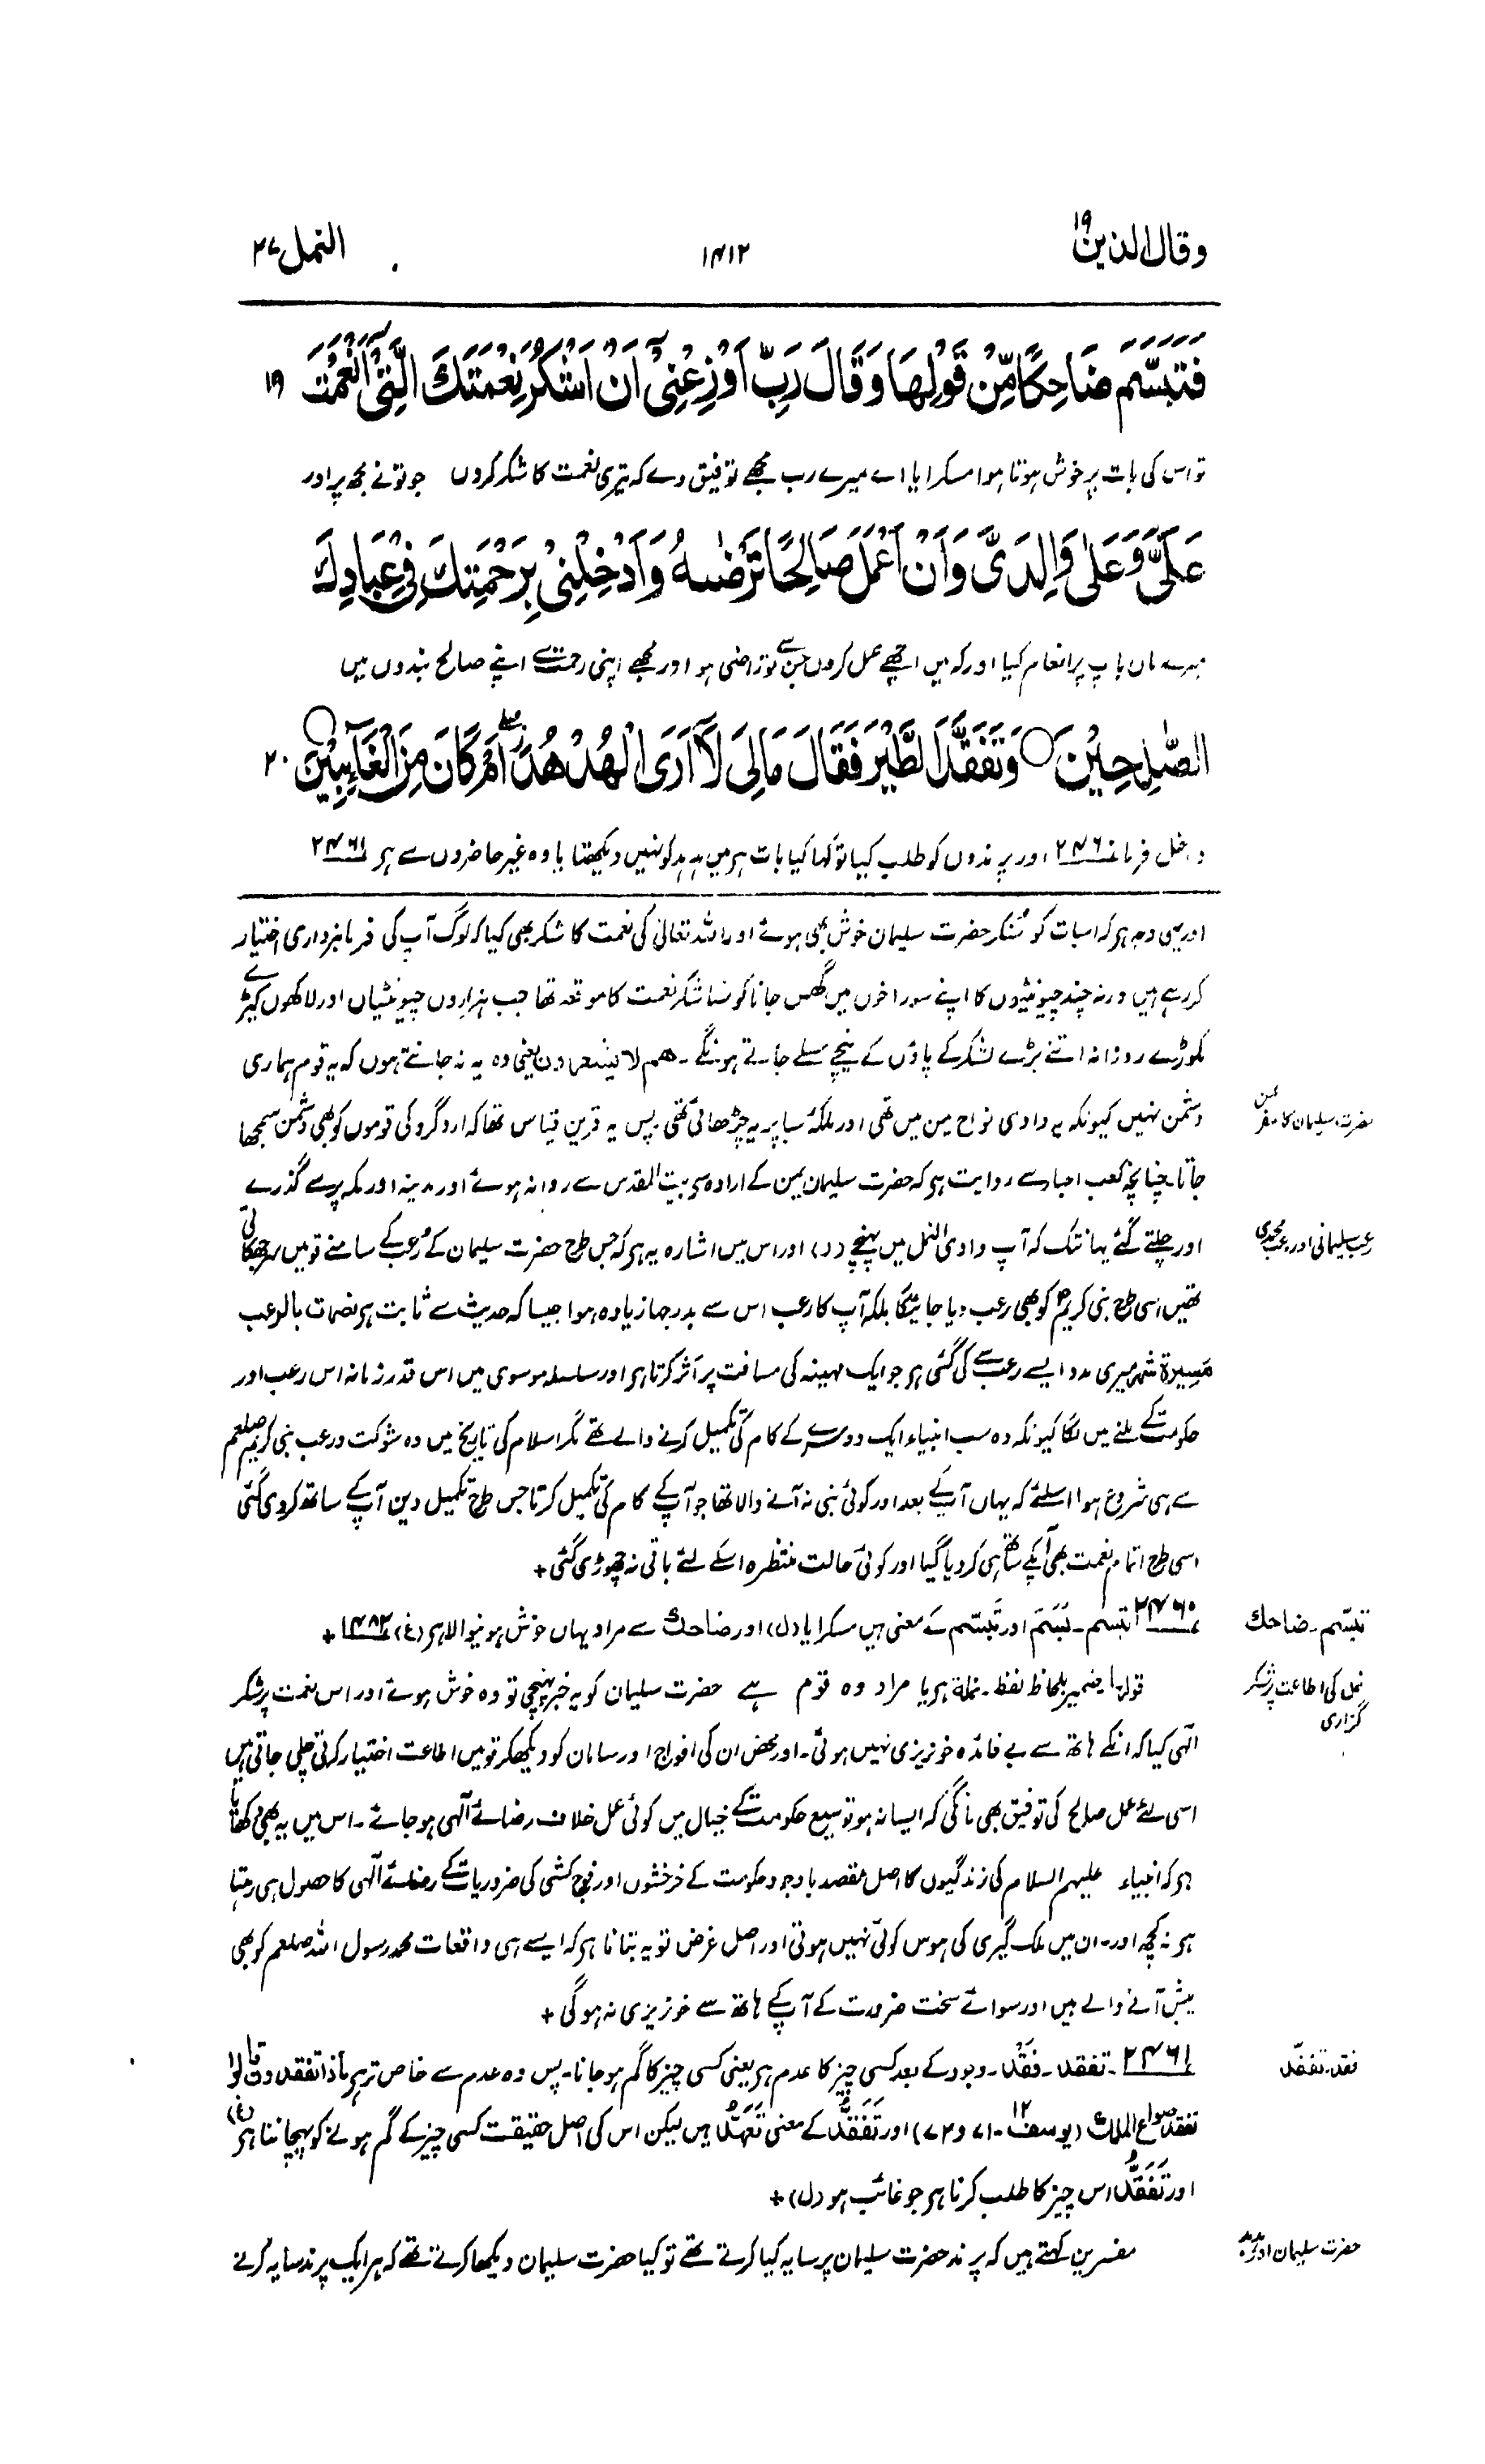 وقال الذین ۱۹
۱۴۱۲
النمل ۲۷
فَتَبَسَّمَ ضَاحِكًا مِّنْ قَوْلِهَا وَقَالَ رَبِّ اَوْزِعْنِیْۤ اَنْ اَشْكُرَ نِعْمَتَكَ الَّتِیْۤ اَنْعَمْتَ ۱۹
تو اس کی بات پر خوش ہوتا ہوا مسکرایا اے میرے رب مجھے توفیق دے کہ تیری نعمت کا شکر کروں جو تونے مجھ پر اور
عَلَیَّ وَعَلٰی وَالِدَیَّ وَاَنْ اَعْمَلَ صَالِحًا تَرْضٰىهُ وَاَدْخِلْنِیْ بِرَحْمَتِكَ فِیْ عِبَادِكَ
میرے ماں باپ پر انعام کیا اور کہ میں اچھے عمل کروں جن سے تو راضی ہو اور مجھے اپنی رحمت سے اپنے صالح بندوں میں
الصّٰلِحِیْنَ ○ وَتَفَقَّدَ الطَّیْرَ فَقَالَ مَا لِیَ لَاۤ اَرَی الْهُدْهُدَ ۖ اَمْ كَانَ مِنَ الْغَآئِبِیْنَ ○ ۲۰
داخل فرما ۲۴۶۰ اور پرندوں کو طلب کیا تو کہا کیا بات ہو میں ہدہد کو نہیں دیکھتا یا وہ غیر حاضروں سے ہو ۲۴۶۱
اور یہی وجہ ہو کہ اس بات کو سُنکر حضرت سلیمان خوش بھی ہوئے اور اللہ تعالیٰ کی نعمت کا شکر بھی کیا کہ لوگ آپ کی فرمانبرداری اختیار
کر رہے ہیں ورنہ چند چیونٹیوں کا اپنے سوراخوں میں گھس جانا کونسا شکر نعمت کا موقعہ تھا جب ہزاروں چیونٹیاں اور لاکھوں کیڑے
مکوڑے روزانہ اتنے بڑے لشکر کے پاؤں کے نیچے مسلے جاتے ہونگے ۔ ھم لا یشعرون یعنی وہ یہ نہ جانتے ہوں کہ یہ قوم ہماری
دشمن نہیں کیونکہ یہ وادی نواح یمن میں تھی اور ملکۂ سبا پر یہ چڑھائی تھی پس یہ قرین قیاس تھا کہ ارد گرد کی قوموں کو بھی دشمن سمجھا
حضرت سلیمان کا سفر یمن
جاتا چنانچہ کعب احبار سے روایت ہو کہ حضرت سلیمان یمن کے ارادہ سے بیت المقدس سے روانہ ہوئے اور مدینہ اور مکہ پر سے گذرے
اور چلتے گئے یہانتک کہ آپ وادی النمل میں پہنچے (ر) اور اس میں اشارہ یہ ہو کہ جس طرح حضرت سلیمان کے رُعب کے سامنے قومیں سر جھکاتی
رعب سلیمانی اور رعب محمدی
تھیں اسی طرح نبی کریمؐ کو بھی رعب دیا جائیگا بلکہ آپ کا رعب اس سے بدرجہا زیادہ ہوا جیسا کہ حدیث سے ثابت ہو نصرت بالرعب
مَسیرة شہر میری مدد ایسے رعب سے کی گئی ہو جو ایک مہینہ کی مسافت پر اثر کرتا ہو اور سلسلہ موسوی میں اس قدر زمانہ اس رعب اور
حکومت کے ملنے میں لگا کیونکہ وہ سب انبیاء ایک دوسرے کے کام کی تکمیل کرنے والے تھے مگر اسلام کی تاریخ میں وہ شوکت و رعب نبی کریم صلعم
سے ہی شروع ہوا اسلئے کہ یہاں آپکے بعد اور کوئی نبی نہ آنے والا تھا جو آپ کے کام کی تکمیل کرتا جس طرح تکمیل دین آپ کے ساتھ کر دی گئی
اسی طرح اتمام نعمت بھی آپکے ساتھ ہی کر دیا گیا اور کوئی حالت منتظرہ اسکے لئے باقی نہ چھوڑی گئی +
۲۴۶۰ تبسم ۔ بَسَمَ اور تَبسّم کے معنی ہیں مسکرایا (ل) اور ضاحك سے مراد یہاں خوش ہونیوالا ہو (غ) ۱۴۸۲ +
تبسّم ۔ ضاحك
قولہا ضمیر بلحاظ لفظ ۔ نملة ہو یا مراد وہ قوم ہے حضرت سلیمان کو یہ خبر پہنچی تو وہ خوش ہوئے اور اس نعمت پر شکر
نمل کی اطاعت پر شکر گزاری
الٰہی کیا کہ انکے ہاتھ سے بے فائدہ خونریزی نہیں ہوئی ۔ اور محض ان کی افواج اور سامان کو دیکھکر قومیں اطاعت اختیار کرتی چلی جاتی ہیں
اسی لئے عمل صالح کی توفیق بھی مانگی کہ ایسا نہ ہو توسیع حکومت کے خیال میں کوئی عمل خلاف رضائے الٰہی ہو جائے ۔ اس میں یہ بھی دکھانا
ہو کہ انبیاء علیہم السلام کی زندگیوں کا اصل مقصد باوجود حکومت کے خرخشوں اور فوج کشی کی ضروریات کے رضائے الٰہی کا حصول ہی رہتا
ہو نہ کچھ اور ۔ ان میں ملک گیری کی ہوس کوئی نہیں ہوتی اور اصل غرض تو یہ بتانا ہو کہ ایسے ہی واقعات محمد رسول اللہ صلعم کو بھی
پیش آنے والے ہیں اور سوائے سخت ضرورت کے آپ کے ہاتھ سے خونریزی نہ ہوگی +
۲۴۶۱ ۔ تفقد ۔ فَقْد ۔ وجود کے بعد کسی چیز کا عدم ہو یعنی کسی چیز کا گم ہو جانا ۔ پس وہ عدم سے خاص تر ہو ماذا تفقدون قالوا
فقد ۔ تفقّد
نفقد صواع الملك (یوسف ۱۲ ۔ ۷۱ و ۷۲) اور تَفَقُّد کے معنی تَعَهُّد ہیں لیکن اس کی اصل حقیقت کسی چیز کے گم ہونے کو پہچاننا ہو (غ)
اور تَفَقُّد اس چیز کا طلب کرنا ہو جو غائب ہو (ل) +
مفسرین کہتے ہیں کہ پرند حضرت سلیمان پر سایہ کیا کرتے تھے تو کیا حضرت سلیمان دیکھا کرتے تھے کہ ہر ایک پرند سایہ کرنے
حضرت سلیمان اور ہدہد